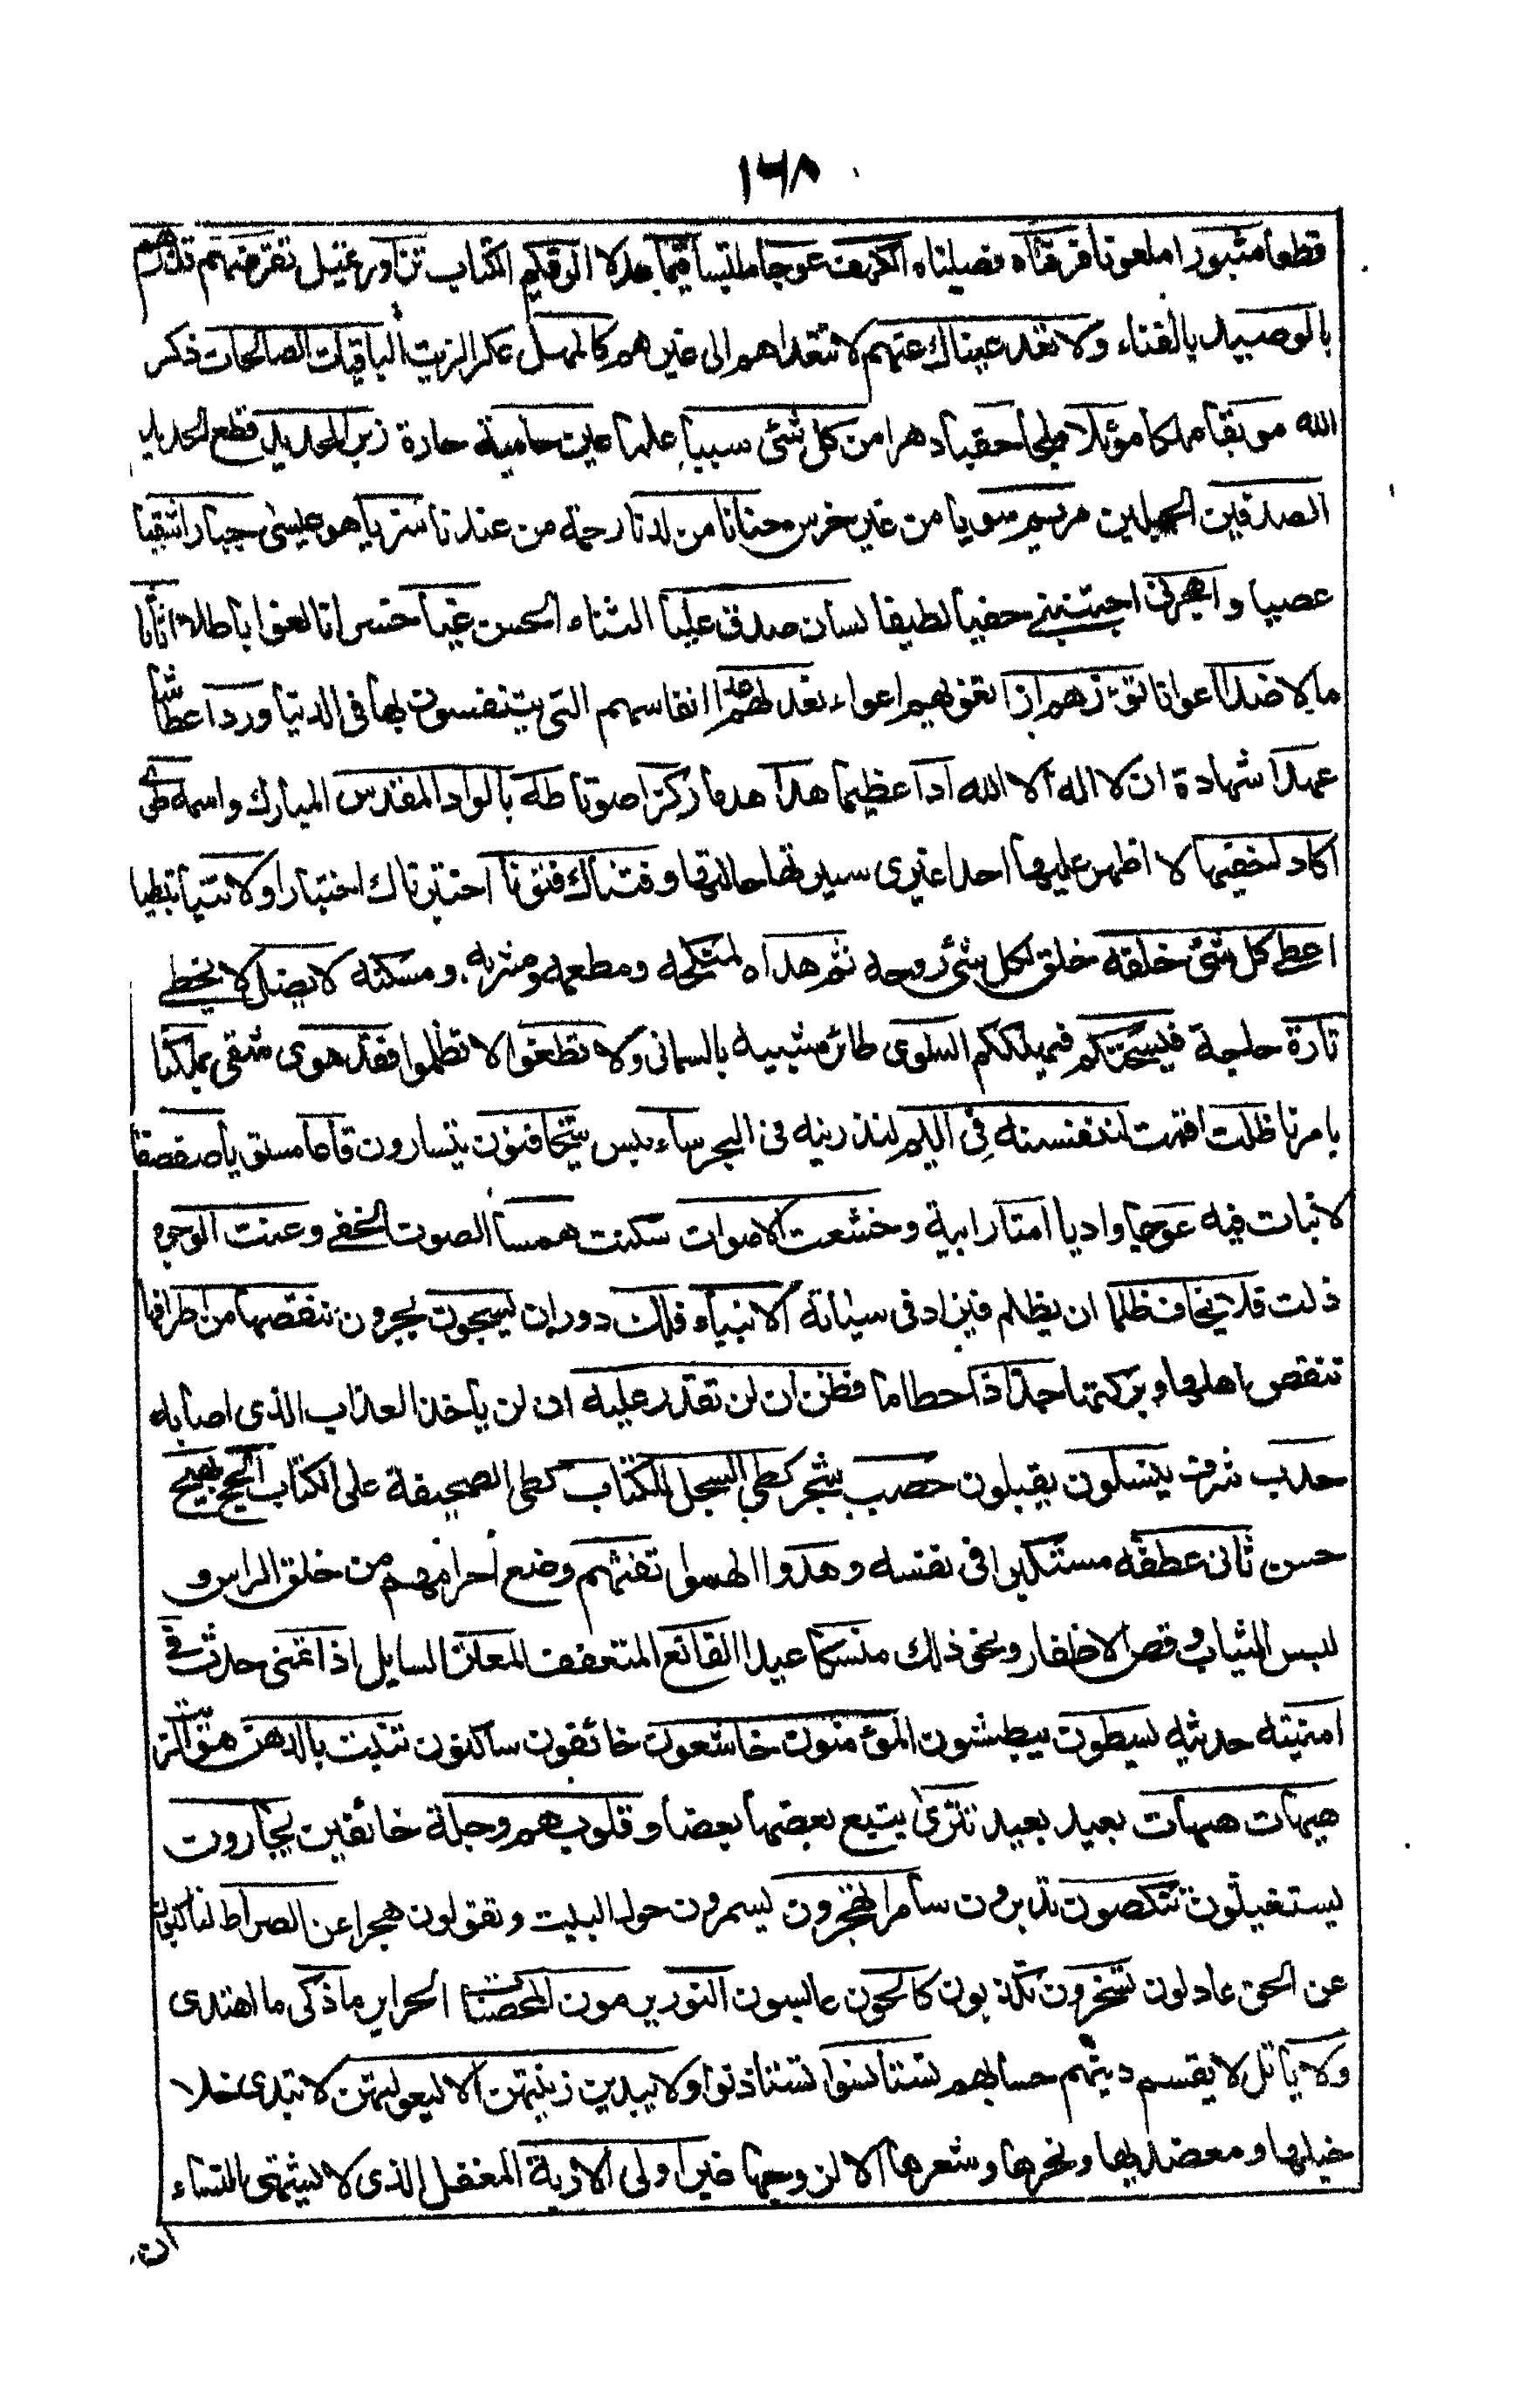 ١٦٨
قطعا مثبورا ملعونا فرقناه فصلناه الكهف عوجا ملتبسا قيما عدلا الرقيم الكتاب تزاور تميل تقرضهم تذرهم
بالوصيد بالفناء ولا تعد عيناك عنهم لا تتعداهم الى غيرهم كالمهل عكر الزيت الباقيات الصالحات ذكر
الله موبقا مهلكا موئلا ملجا حقبا دهرا من كل شئ سببا علما عين حامية حارة زبر الحديد قطع الحديد
الصدفين الجبلين مريم سويا من غير خرس حنانا من لدنا رحمة من عندنا سريا هو عيسى جبارا شقيا
عصيا واهجرنى اجتنبنى حفيا لطيفا لسان صدق عليا الثناء الحسن غيا خسرانا لغوا باطلا اثاثا
مالا ضدا اعوانا تؤزهم ازا تغويهم اغواء نعد لهم عدا انفاسهم التى يتنفسون بها فى الدنيا وردا عطاشا
عهدا شهادة ان لا اله الا الله ادا عظيما هدا هدما ركزا صوتا طه بالواد المقدس المبارك واسمه طوى
اكاد اخفيها لا اظهر عليها احدا غيرى سيرتها حالتها وفتناك فتونا اختبرناك اختبارا ولا تنيا تبطيا
اعطى كل شئ خلقه خلق لكل شئ زوجه ثم هداه لمنكحه ومطعمه ومشربه ومسكنه لا يضل لا يخطى
تارة حاجة فيسحتكم فيهلككم السلوى طائر شبيه بالسمانى ولا تطغوا لا تظلموا فقد هوى شقى بملكنا
بامرنا ظلت اقمت لننسفنه فى اليم لنذرينه فى البحر ساء بئس يتخافتون يتسارون قاعا مستويا صفصفا
لا نبات فيه عوجا واديا امتا رابية وخشعت الاصوات سكنت همسا الصوت الخفى وعنت الوجوه
ذلت فلا يخاف ظلما ان يظلم فيزاد فى سيئاته الانبياء فلك دوران يسبحون يجرون ننقصها من اطرافها
تنقص اهلها وبركتها جذاذا حطاما فظن ان لن نقدر عليه ان لن ياخذ العذاب الذى اصابه
حدب شرف ينسلون يقبلون حصب شجر كطى السجل للكتاب كطى الصحيفة على الكتاب الحج بهيج
حسن ثانى عطفه مستكبرا فى نفسه وهدوا الهموا تفثهم وضع احرامهم من خلق الراس و
لبس الثياب وقص الاظفار ونحو ذلك منسكا عيدا القانع المتعفف المعتر السايل اذا تمنى حدث فى
امنيته حديثه يسطون يبطشون المؤمنون خاشعون خائفون ساكنون تنبت بالدهن هو الزيت
هيهات هيهات بعيد بعيد تترى يتبع بعضها بعضا وقلوبهم وجلة خائفين يجارون
يستغيثون تنكصون تدبرون سامرا تهجرون يسمرون حول البيت وتقولون هجرا عن الصراط لناكبون
عن الحق عادلون تسخرون تكذبون كالحون عابسون النور يرمون المحصنات الحراير ما زكى ما اهتدى
ولا ياتل لا يقسم دينهم حسابهم تستانسوا تستاذنوا ولا يبدين زينتهن الا لبعولتهن لا تبدى خلا
خيلها ومعضديها ونحرها وشعرها الا لزوجها غير اولى الاربة المغفل الذى لا يشتهى النساء
ان